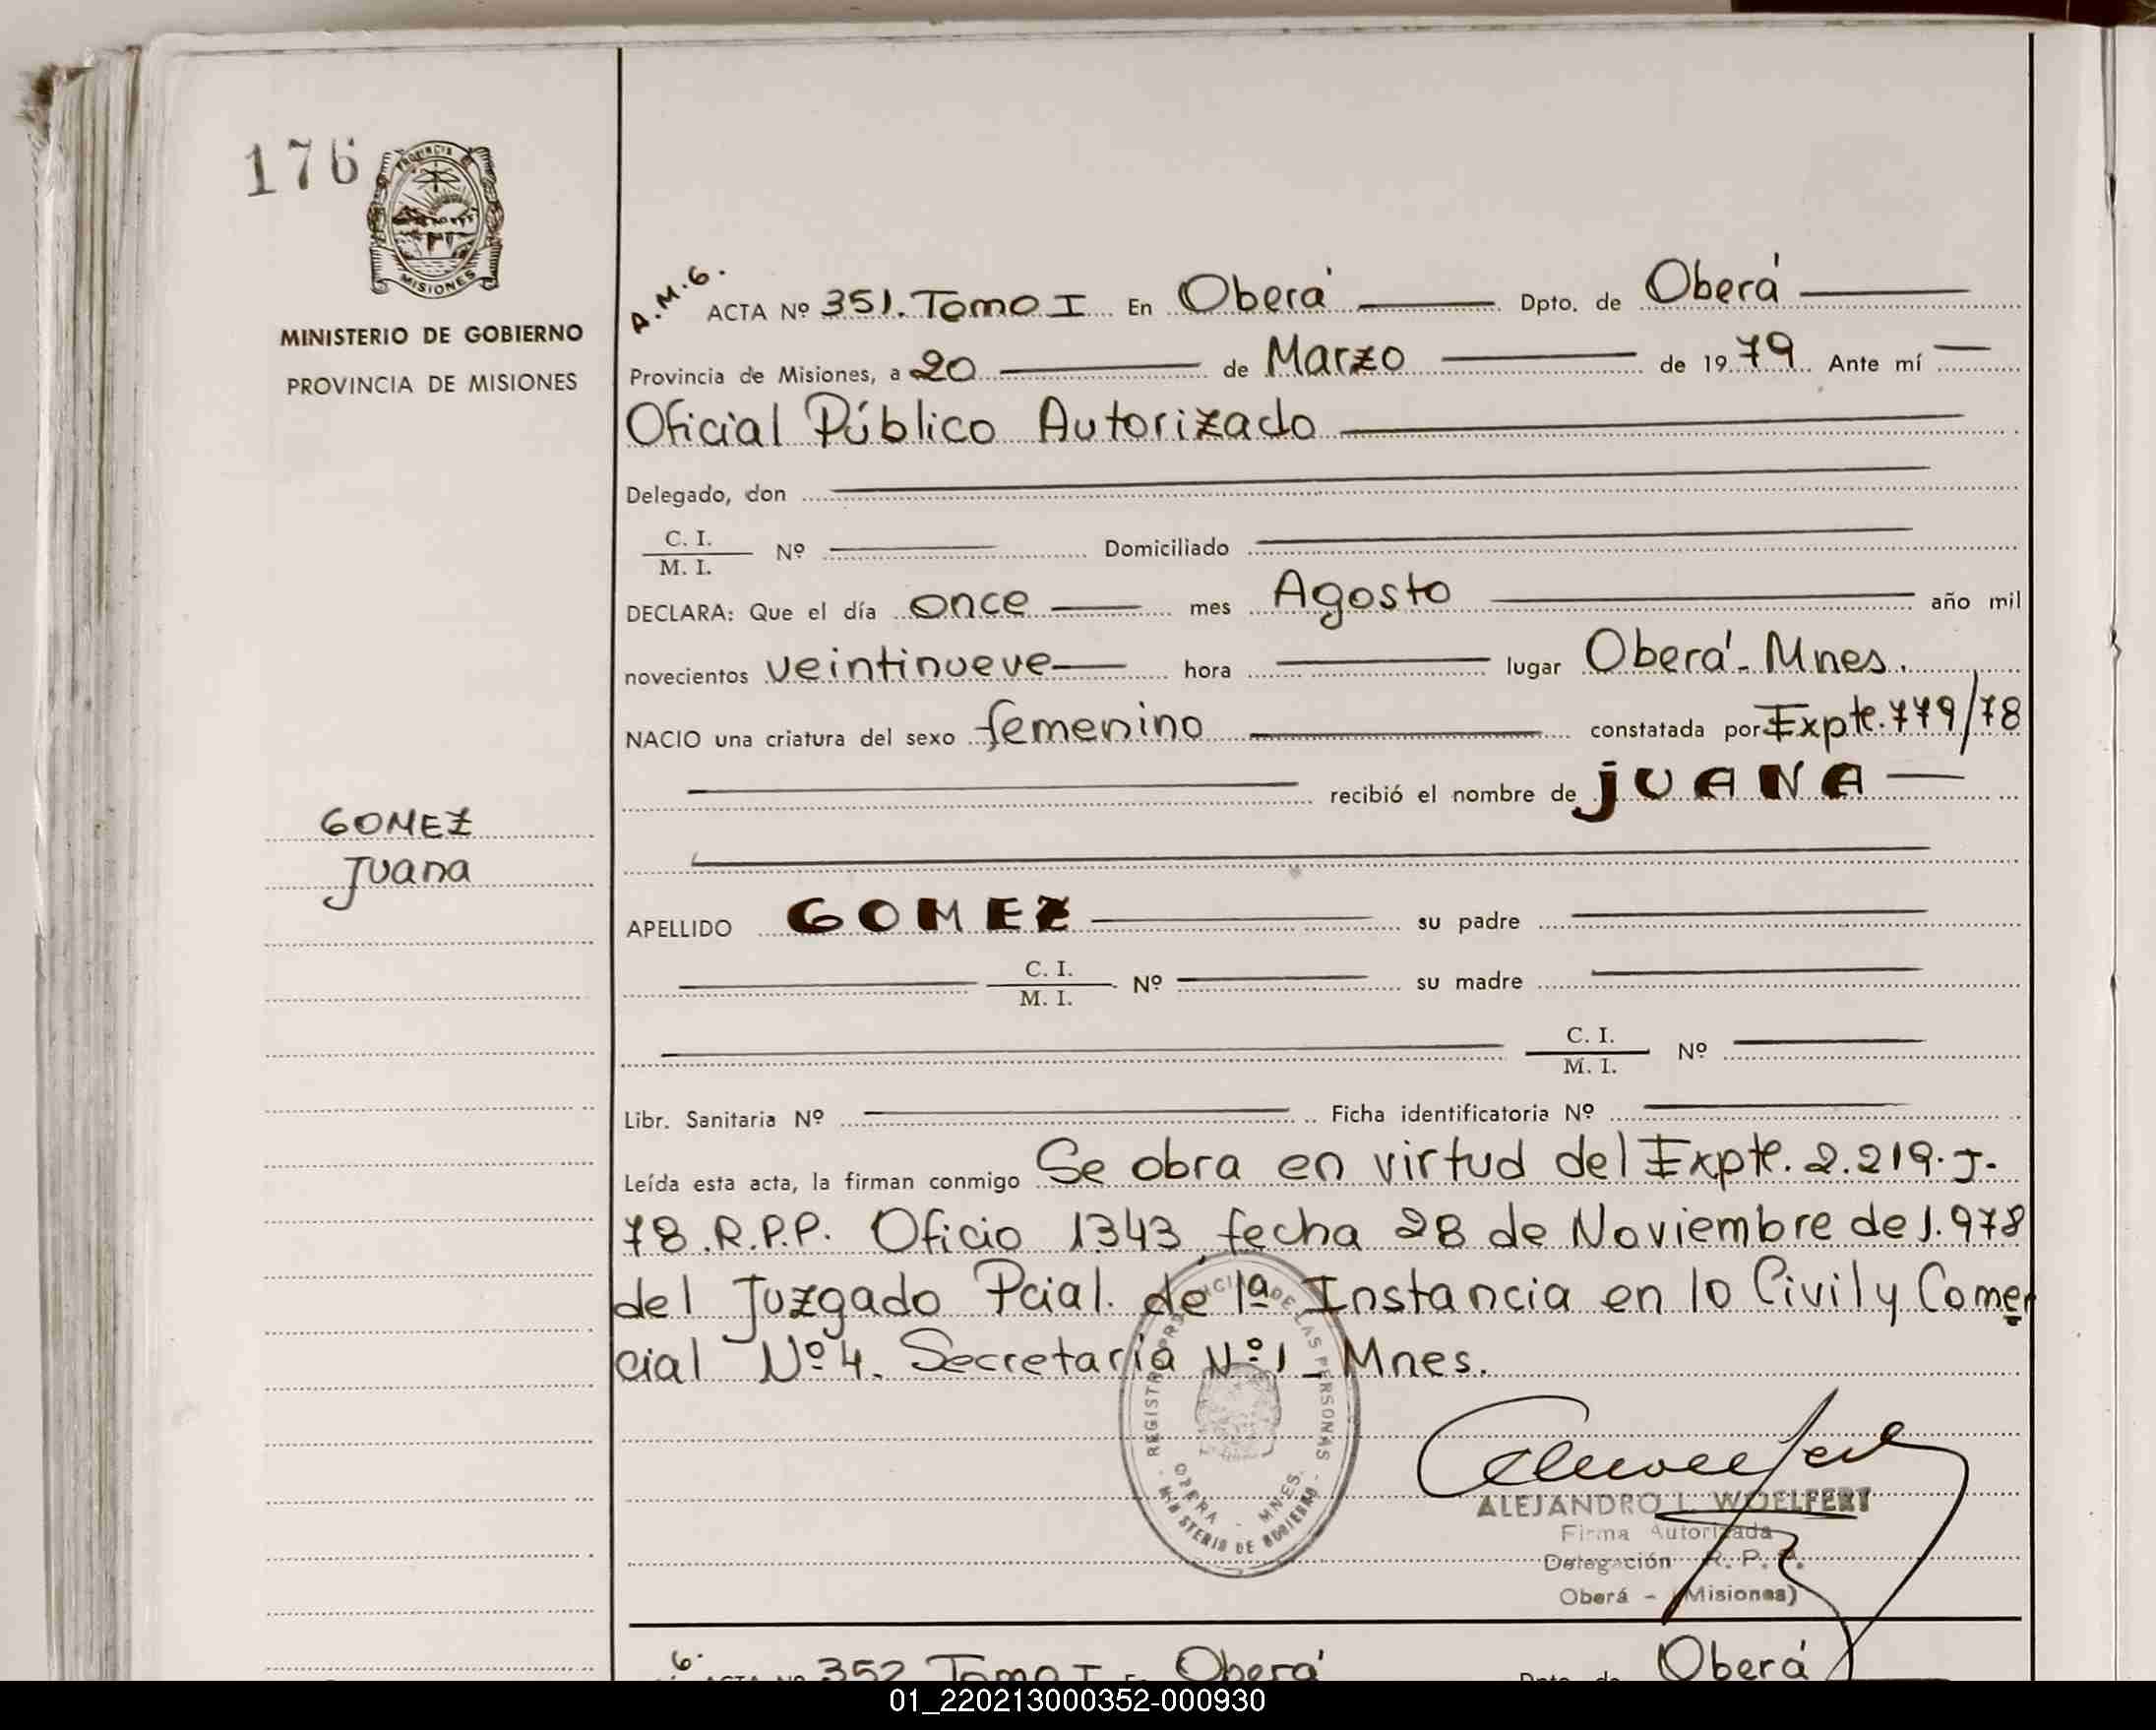 176
PROVINCIA
MISIONES
MINISTERIO DE GOBIERNO
PROVINCIA DE MISIONES
GOMEZ
Juana
A.M.G.
ACTA Nº 351. Tomo I En Oberá Dpto. de Oberá
Provincia de Misiones, a 20 de Marzo de 1979 Ante mí
Oficial Público Autorizado
Delegado, don
C. I.
M. I. Nº Domiciliado
DECLARA: Que el día once mes Agosto año mil
novecientos veintinueve hora lugar Oberá - Mnes.
NACIO una criatura del sexo femenino constatada por Expte. 779/78
recibió el nombre de JUANA
APELLIDO GOMEZ su padre
C. I.
M. I. Nº su madre
C. I.
M. I. Nº
Libr. Sanitaria Nº Ficha identificatoria Nº
Leída esta acta, la firman conmigo Se obra en virtud del Expte. 2.219. J-
78.R.P.P. Oficio 1343, fecha 28 de Noviembre de 1.978
del Juzgado Pcial. de 1ª Instancia en lo Civil y Comer
cial Nº 4. Secretaría Nº 1 - Mnes.
REGISTRO PROVINCIAL DE LAS PERSONAS
OBERA - MNES.
MINISTERIO DE GOBIERNO
ALEJANDRO L. WOELFERT
Firma Autorizada
Delegación R. P. P.
Oberá - (Misiones)
G. ACTA Nº 352 Tomo I En Oberá Dpto. de Oberá
01_220213000352-000930